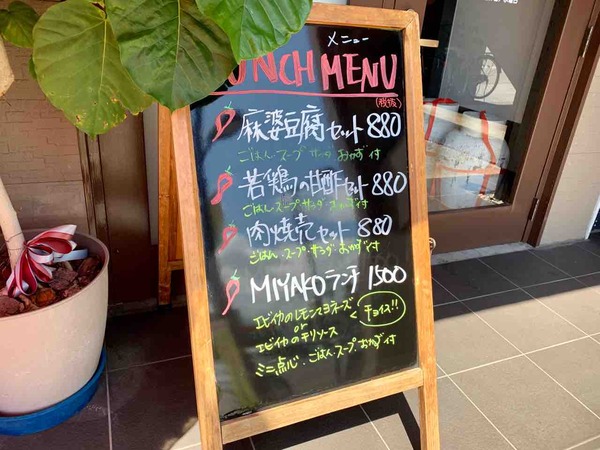 メニュー
LUNCH MENU
(税抜)
麻婆豆腐セット 880
ごはん・スープ・サラダ・おかず付
若鶏の甘酢セット 880
ごはん・スープ・サラダ・おかず付
肉焼売セット 880
ごはん・スープ・サラダ・おかず付
MIYAKOランチ 1500
エビイカのレモンマヨネーズ
or
エビイカのチリソース
< チョイス!!
ミニ点心・ごはん・スープ・おかず付